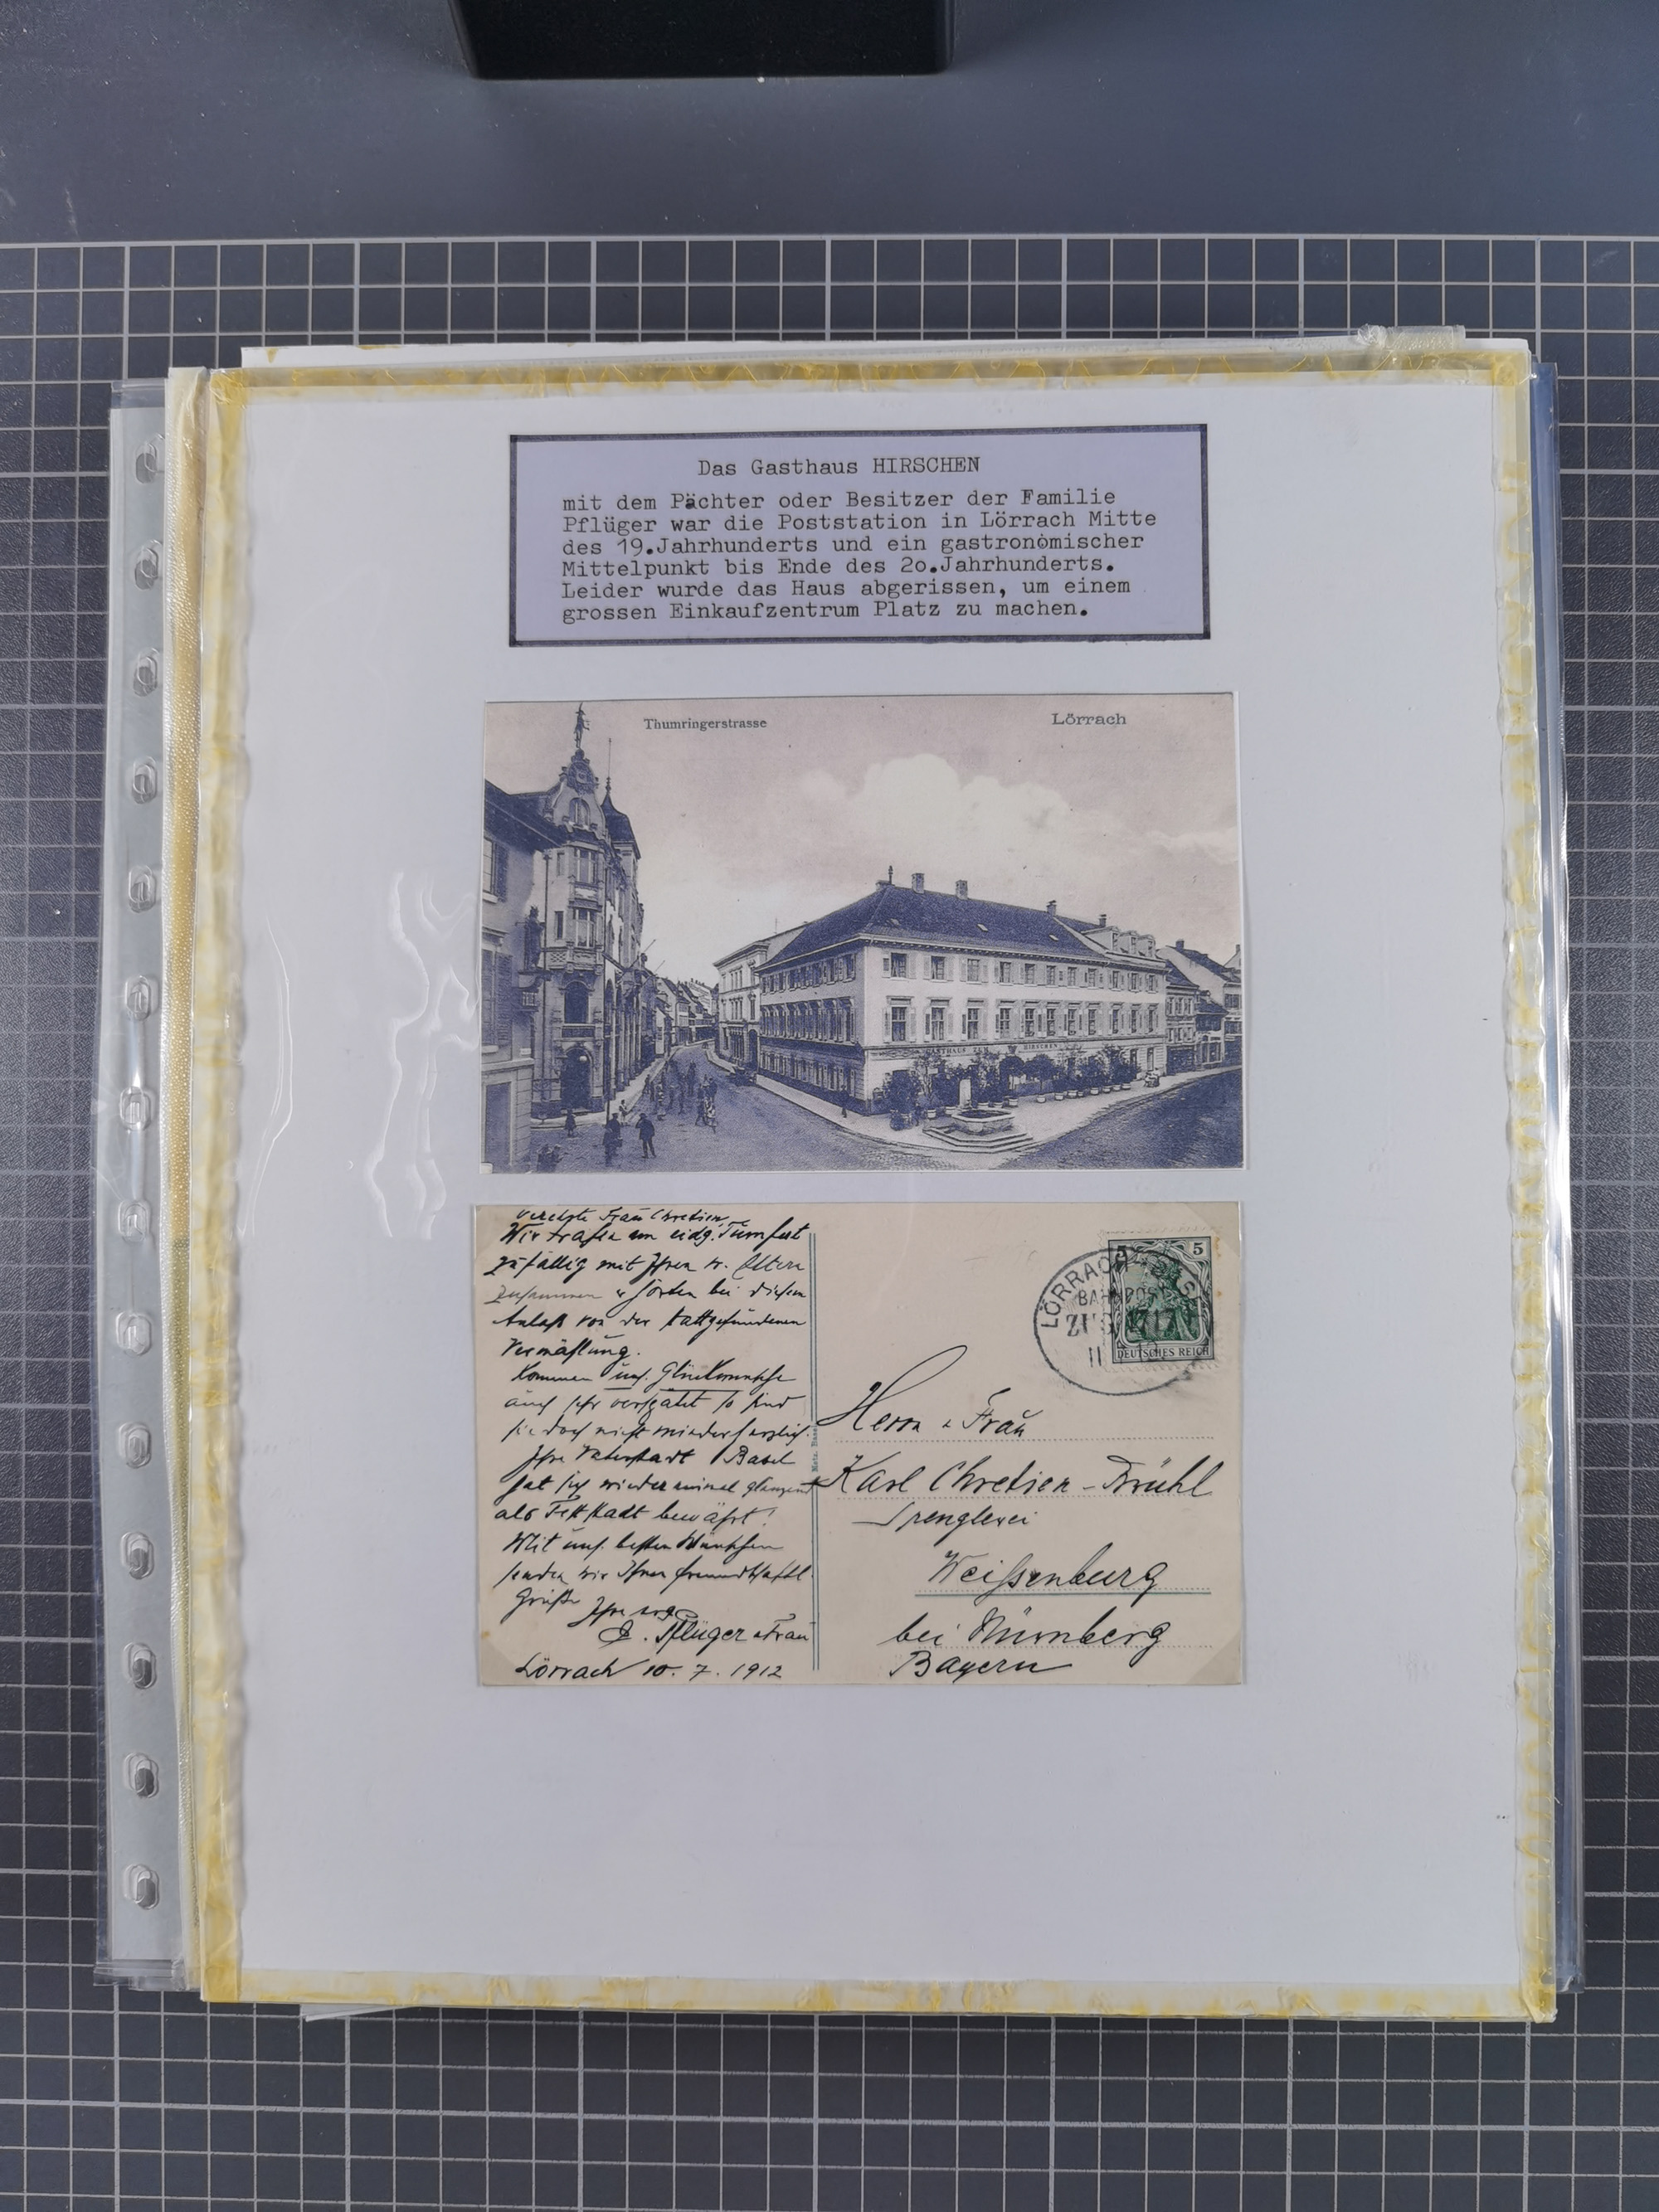 Das Gasthaus HIRSCHEN
mit dem Pächter oder Besitzer der Familie
Pflüger war die Poststation in Lörrach Mitte
des 19.Jahrhunderts und ein gastronomischer
Mittelpunkt bis Ende des 2o.Jahrhunderts.
Leider wurde das Haus abgerissen, um einem
grossen Einkaufzentrum Platz zu machen.
Thumringerstrasse
Lörrach
GASTHAUS ZUM HIRSCHEN
Verehrte Frau Chretien,
Wir trafen am eidg. Turnfest
zufällig mit Ihren w. Eltern
zusammen & hörten bei diesem
Anlaß von der stattgefundenen
Vermählung.
Kommen uns. Glückwünsche
auch sehr verspätet so sind
sie doch nicht minder herzlich.
Ihre Vaterstadt Basel
hat sich wieder einmal glänzend
als Feststadt bewährt!
Mit uns. besten Wünschen
senden wir Ihnen freundschaftl.
Grüße
Ihre erg.
E. Pflüger & Frau
Lörrach 10. 7. 1912
5 5
DEUTSCHES REICH
LÖRRACH
BAHNPOST
ZUG
11
Herrn & Frau
Karl Chretien-Brühl
Spenglerei
Weißenburg
bei Nürnberg
Bayern